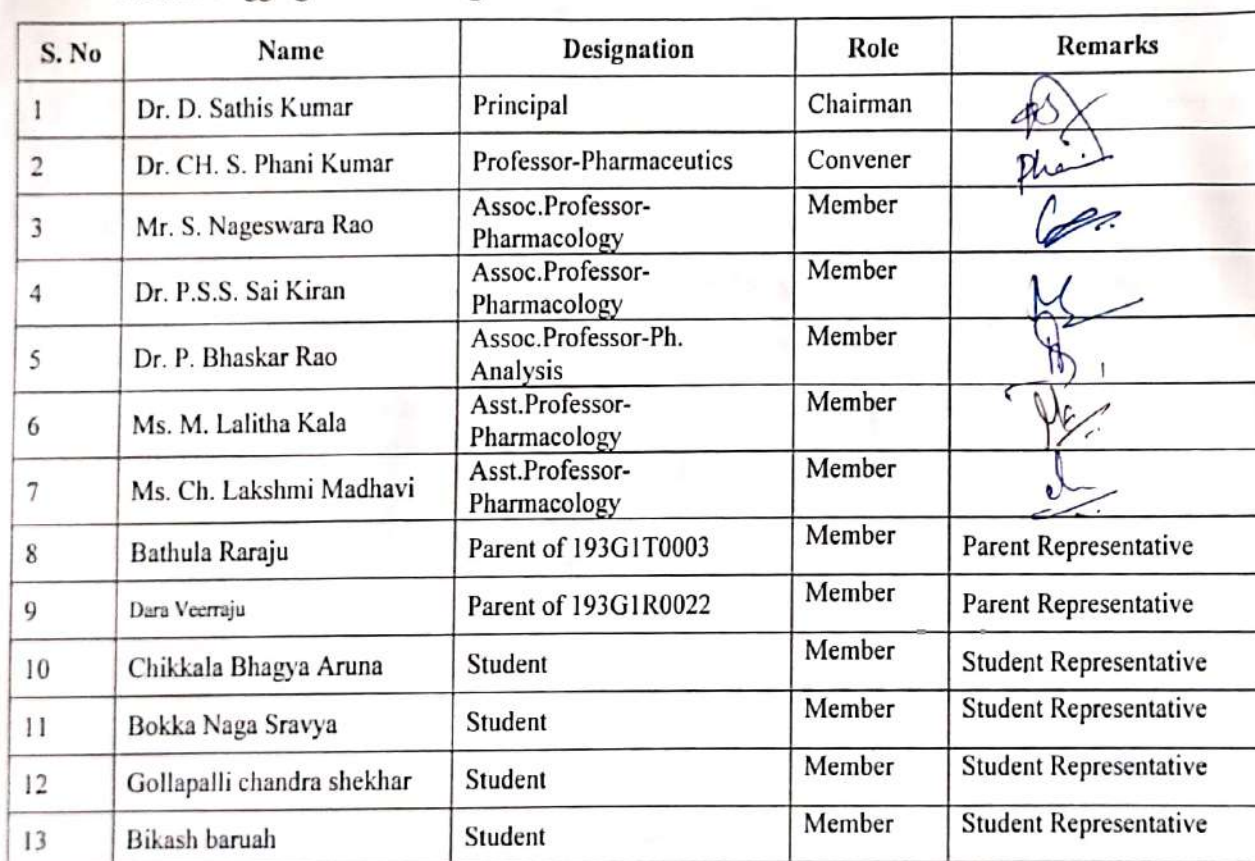 S. No Name Designation Role Remarks
1 Dr. D. Sathis Kumar Principal Chairman
2 Dr. CH. S. Phani Kumar Professor-Pharmaceutics Convener Phani
3 Mr. S. Nageswara Rao Assoc.Professor- Member
Pharmacology
4 Dr. P.S.S. Sai Kiran Assoc.Professor- Member
Pharmacology
5 Dr. P. Bhaskar Rao Assoc.Professor-Ph. Member
Analysis
6 Ms. M. Lalitha Kala Asst.Professor- Member
Pharmacology
7 Ms. Ch. Lakshmi Madhavi Asst.Professor- Member
Pharmacology
8 Bathula Raraju Parent of 193G1T0003 Member Parent Representative
9 Dara Veerraju Parent of 193G1R0022 Member Parent Representative
10 Chikkala Bhagya Aruna Student Member Student Representative
11 Bokka Naga Sravya Student Member Student Representative
12 Gollapalli chandra shekhar Student Member Student Representative
13 Bikash baruah Student Member Student Representative